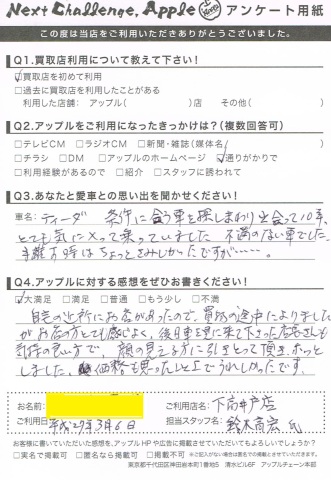 Next Challenge, Apple アンケート用紙
この度は当店をご利用いただきありがとうございました。
Q1.買取店利用について教えて下さい!
☑買取店を初めて利用
□過去に買取店を利用したことがある
利用した店舗: アップル( )店 その他( )
Q2.アップルをご利用になったきっかけは?(複数回答可)
□テレビCM □ラジオCM □新聞・雑誌(媒体名)
□チラシ □DM □アップルのホームページ ☑通りがかりで
□利用経験があるので □紹介 □スタッフに誘われて
Q3.あなたと愛車との思い出を聞かせください!
車名: ティーダ 条件に合う車を探しまわり出会って10年、
とても気に入って乗っていました 不満のない車でした。
手離す時はちょっとさみしかったですが……。
Q4.アップルに対する感想をぜひお書きください!
☑大満足 □満足 □普通 □もう少し □不満
自宅の近所にお店があったので、買物の途中によりました
がお店の方とても感じよく、後日車を見に来て下さった店長さんも
気持の良い方で、顔の見える方に引きとって頂き、ホッと
しました。価格も思った以上でうれしかったです。
お名前:
ご利用店名: 下高井戸店
ご利用日: 平成27年3月6日
担当スタッフ名: 鈴木高宏 氏
お客様に書いていただいた感想を、アップルHPや広告に掲載させていただいてもよろしいでしょうか?
□実名で掲載可 □匿名なら掲載可 □掲載不可 ※ご記入がない場合は匿名での掲載とさせていただきます。
東京都千代田区神田岩本町1番地5 清水ビル6F アップルチェーン本部